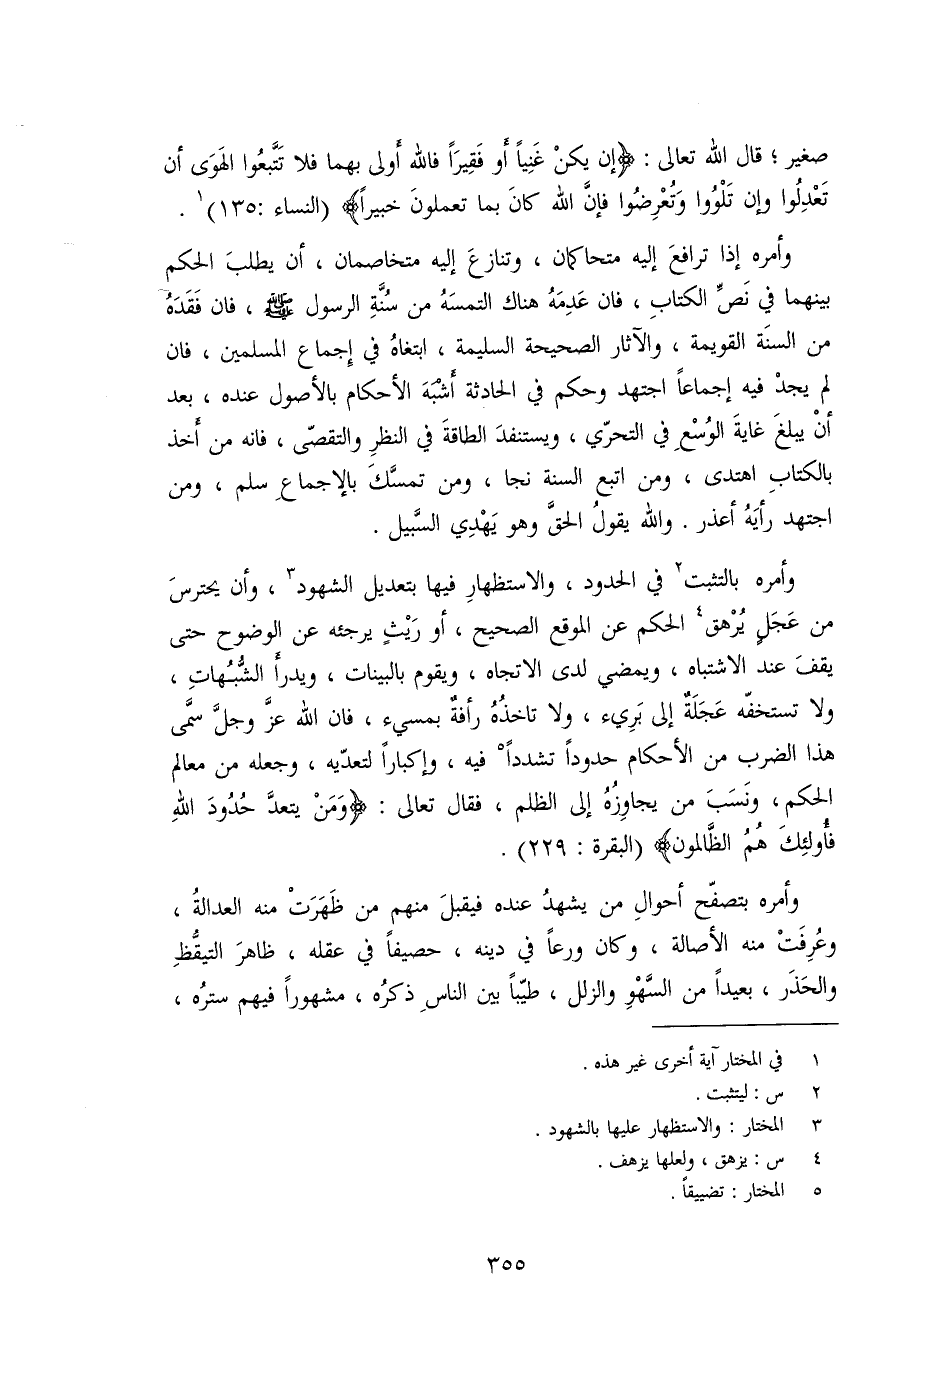 صغير ؛ قال الله تعالى : ﴿إن يكنْ غَنِياً أو فَقِيرَاً فالله أَولى بهما فلا تَتَّبعُوا الهَوَى أن
تَعْدِلُوا وإن تَلْوُوا وَتُعْرِضُوا فإنَّ الله كانَ بما تعملونَ خبيراً﴾ (النساء :١٣٥)١ .
وأمره إذا ترافعَ إليه متحاكمان ، وتنازعَ إليه متخاصمان ، أن يطلبَ الحكم
بينهما في نَصِّ الكتابِ ، فان عَدِمَهُ هناك التمسَهُ من سُنَّةِ الرسول ﷺ ، فان فَقَدَهُ
من السنَة القويمة ، والآثار الصحيحة السليمة ، ابتغاهُ في إِجماع المسلمين ، فان
لم يجدْ فيه إجماعاً اجتهد وحكم في الحادثة أَشْبَهَ الأحكام بالأصول عنده ، بعد
أنْ يبلغَ غايةَ الوُسْعِ في التحرّي ، ويستنفدَ الطاقةَ في النظرِ والتقصّي ، فانه من أَخذ
بالكتابِ اهتدى ، ومن اتبع السنة نجا ، ومن تمسَّكَ بالإجماعِ سلم ، ومن
اجتهد رأيَهُ أعذر . والله يقولُ الحقَّ وهو يَهْدِي السَّبيل .
وأمره بالتثبت٢ في الحدود ، والاستظهارِ فيها بتعديل الشهود٣ ، وأن يحترسَ
من عَجَلٍ يُرْهق٤ الحكم عن الموقع الصحيح ، أو رَيْثٍ يرجئه عن الوضوح حتى
يقفَ عند الاشتباه ، ويمضي لدى الاتجاه ، ويقوم بالبينات ، ويدرأَ الشُّبُهاتِ ،
ولا تستخفّه عَجَلَةٌ إلى بَرِيء ، ولا تاخذُهُ رأفةٌ بمسيء ، فان الله عزَّ وجلَّ سمَّى
هذا الضرب من الأحكام حدوداً تشدداً٥ فيه ، وإكباراً لتعدّيه ، وجعله من معالم
الحكم، ونَسَبَ من يجاوِزُهُ إلى الظلم ، فقال تعالى : ﴿وَمَنْ يتعدَّ حُدُودَ اللهِ
فأُولئِكَ هُمُ الظَّالمون﴾ (البقرة : ٢٢٩) .
وأمره بتصفّح أحوالِ من يشهدُ عنده فيقبلَ منهم من ظَهَرَتْ منه العدالةُ ،
وعُرِفَتْ منه الأصالة ، وكان ورعاً في دينه ، حصيفاً في عقله ، ظاهرَ التيقُّظِ
والحَذَر ، بعيداً من السَّهْوِ والزلل ، طيّباً بين الناسِ ذكرُه ، مشهوراً فيهم سترُه ،
١ في المختار آية أخرى غير هذه .
٢ س : ليتثبت .
٣ المختار : والاستظهار عليها بالشهود .
٤ س : يزهق ، ولعلها يزهف .
٥ المختار : تضييقاً .
٣٥٥